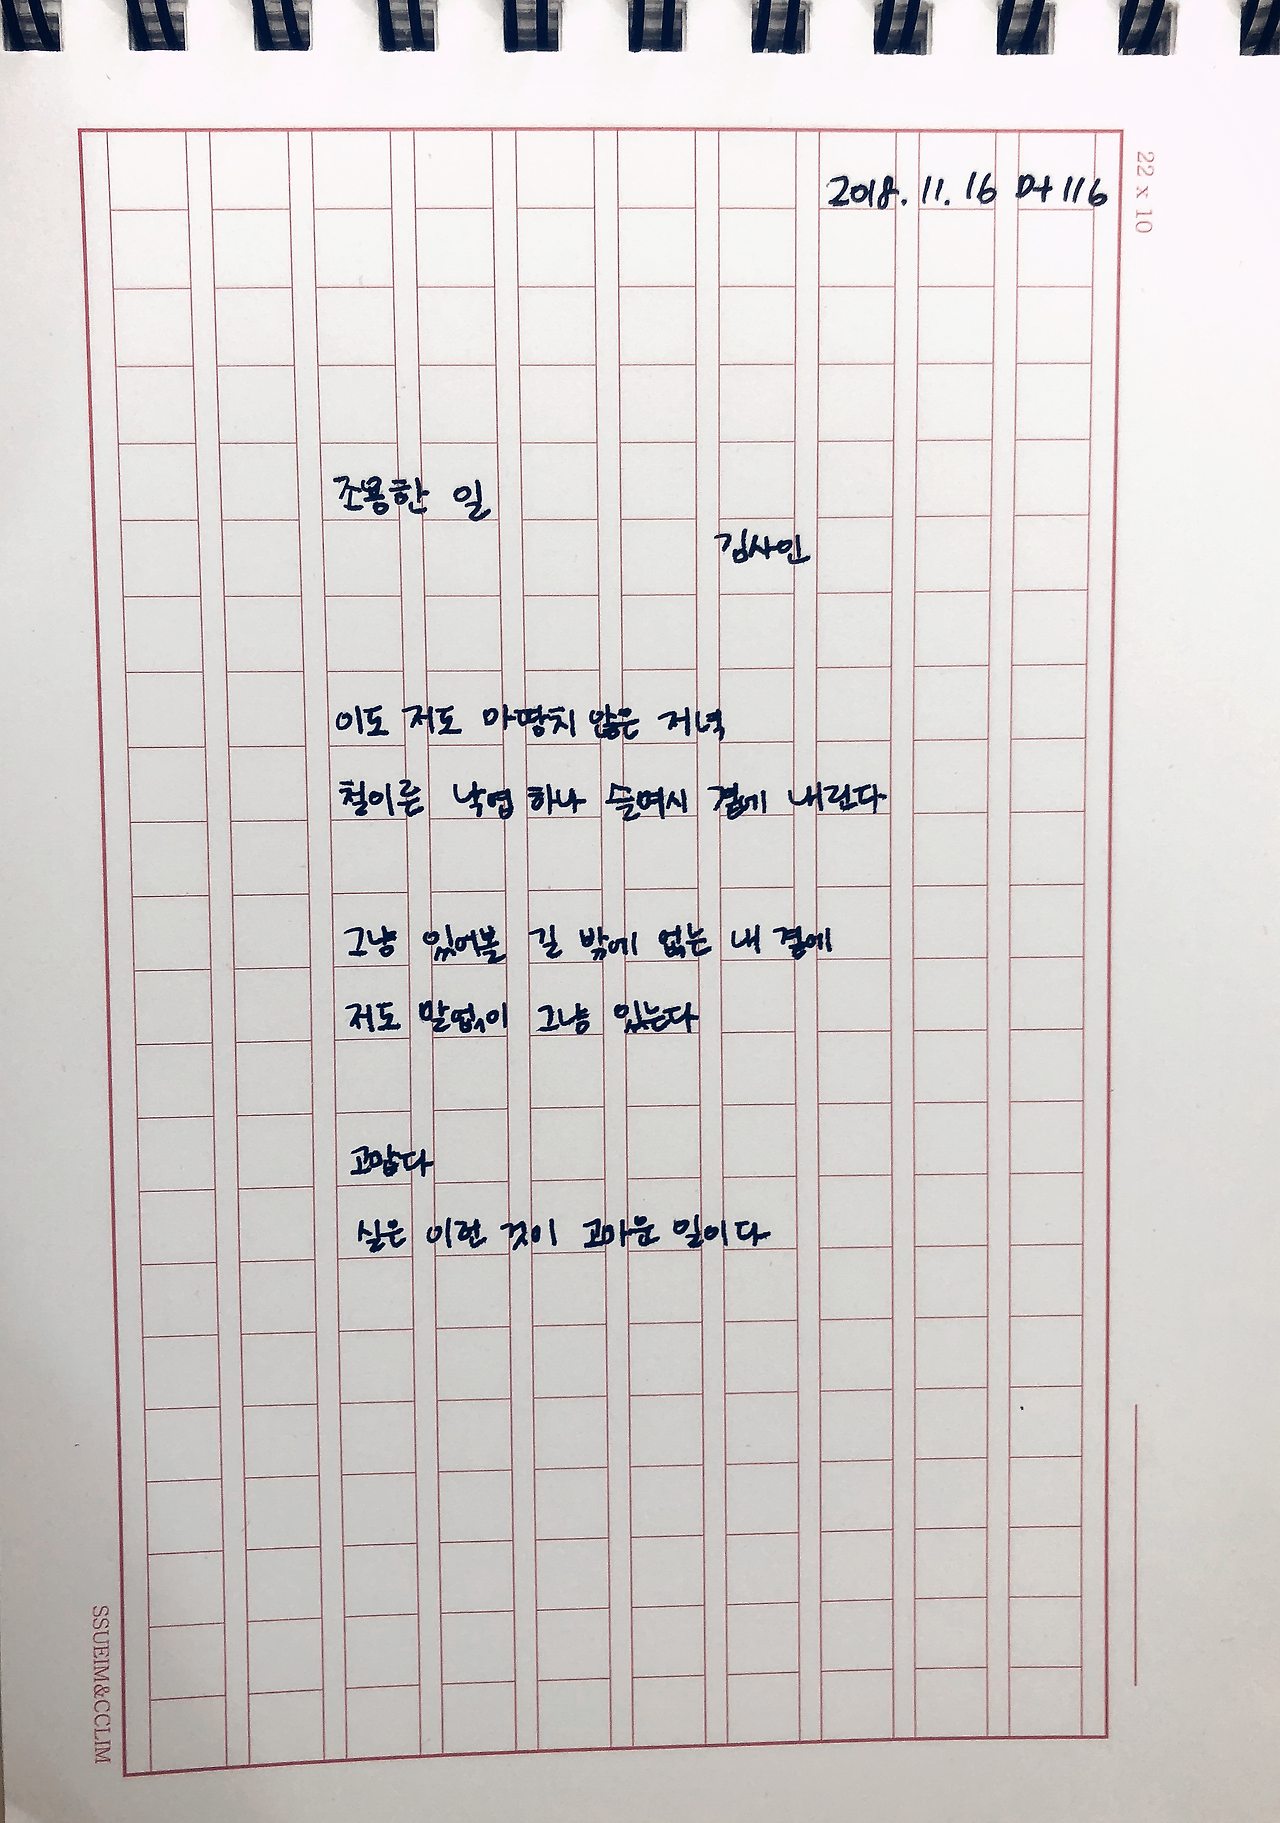 2018. 11. 16 D+116
22 x 10
조용한 일
김사인
이도 저도 마땅치 않은 저녁
철이른 낙엽 하나 슬며시 곁에 내린다
그냥 있어볼 길 밖에 없는 내 곁에
저도 말없이 그냥 있는다
고맙다
실은 이런 것이 고마운 일이다
SSUEIM&CCLIM